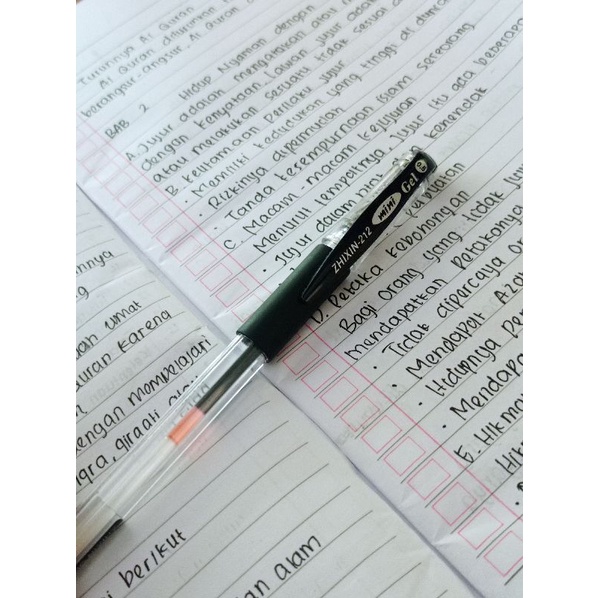 Turunnya Al Quran
Al Quran diturunkan
berangsur-angsur. Al Quran
BAB 2 Hidup Nyaman dengan
A. Jujur adalah mengatakan atau
dengan kenyataan. Lawan jujur adalah
atau melakukan sesuatu tidak sesuai
B. keutamaan Perilaku jujur
• Memiliki kedudukan yang tinggi di
• Rizkinya dipermudah
• Tanda kesempurnaan Islam seseorang
C. Macam - macam kejujuran
Menurut tempatnya, Jujur itu ada beberapa
• Jujur dalam kehendak
D. Petaka Kebohongan
Bagi orang yang tidak jujur
mendapatkan Petakanya
• Tidak dipercaya orang
• Mendapat Azab
• Hidupnya
• Mendapat
E. Hikmah
Hikm
ZHIXIN-212 mini Gel
umat
uran karena
dengan mempelajari
iqra, qiraati,
berikut
an alam